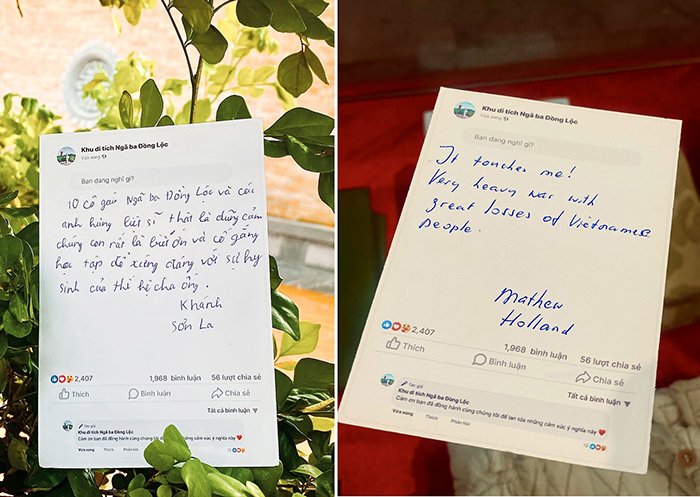 Khu di tích Ngã ba Đồng Lộc
Vừa xong
Bạn đang nghĩ gì?
10 cô gái Ngã ba Đồng Lộc và các
anh hùng liệt sĩ thật là dũng cảm
chúng con rất là biết ơn và cố gắng
học tập để xứng đáng với sự hy
sinh của thế hệ cha ông.
Khánh
Sơn La
2,407
1,968 bình luận
56 lượt chia sẻ
Thích
Bình luận
Chia sẻ
Tất cả bình luận
Tác giả
Khu di tích Ngã ba Đồng Lộc
Cảm ơn bạn đã đồng hành cùng chúng tôi để lan tỏa những cảm xúc ý nghĩa này
Vừa xong
Thích
Phản hồi
Khu di tích Ngã ba Đồng Lộc
Vừa xong
Bạn đang nghĩ gì?
It touches me!
Very heavy war with
great losses of Vietnamese
people.
Mathew
Holland
2,407
1,968 bình luận
56 lượt chia sẻ
Thích
Bình luận
Chia sẻ
Tất cả bình luận
Tác giả
Khu di tích Ngã ba Đồng Lộc
Cảm ơn bạn đã đồng hành cùng chúng tôi để lan tỏa những cảm xúc ý nghĩa này
Vừa xong
Thích
Phản hồi